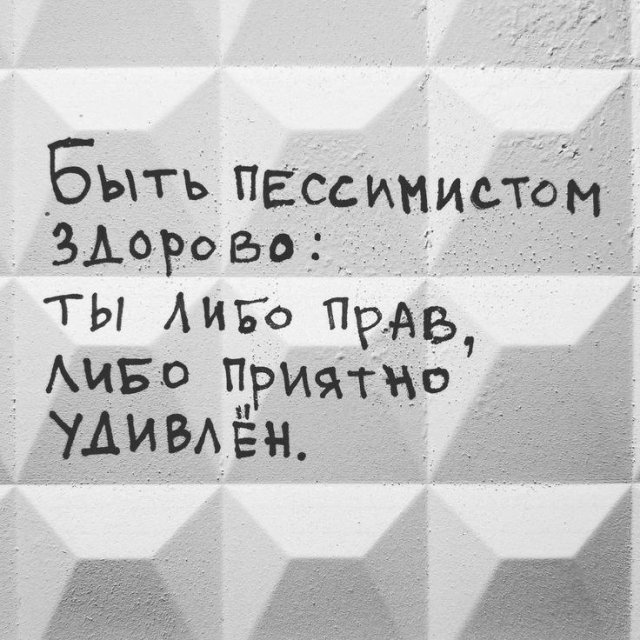 Быть пессимистом
здорово:
ты либо прав,
либо приятно
удивлён.